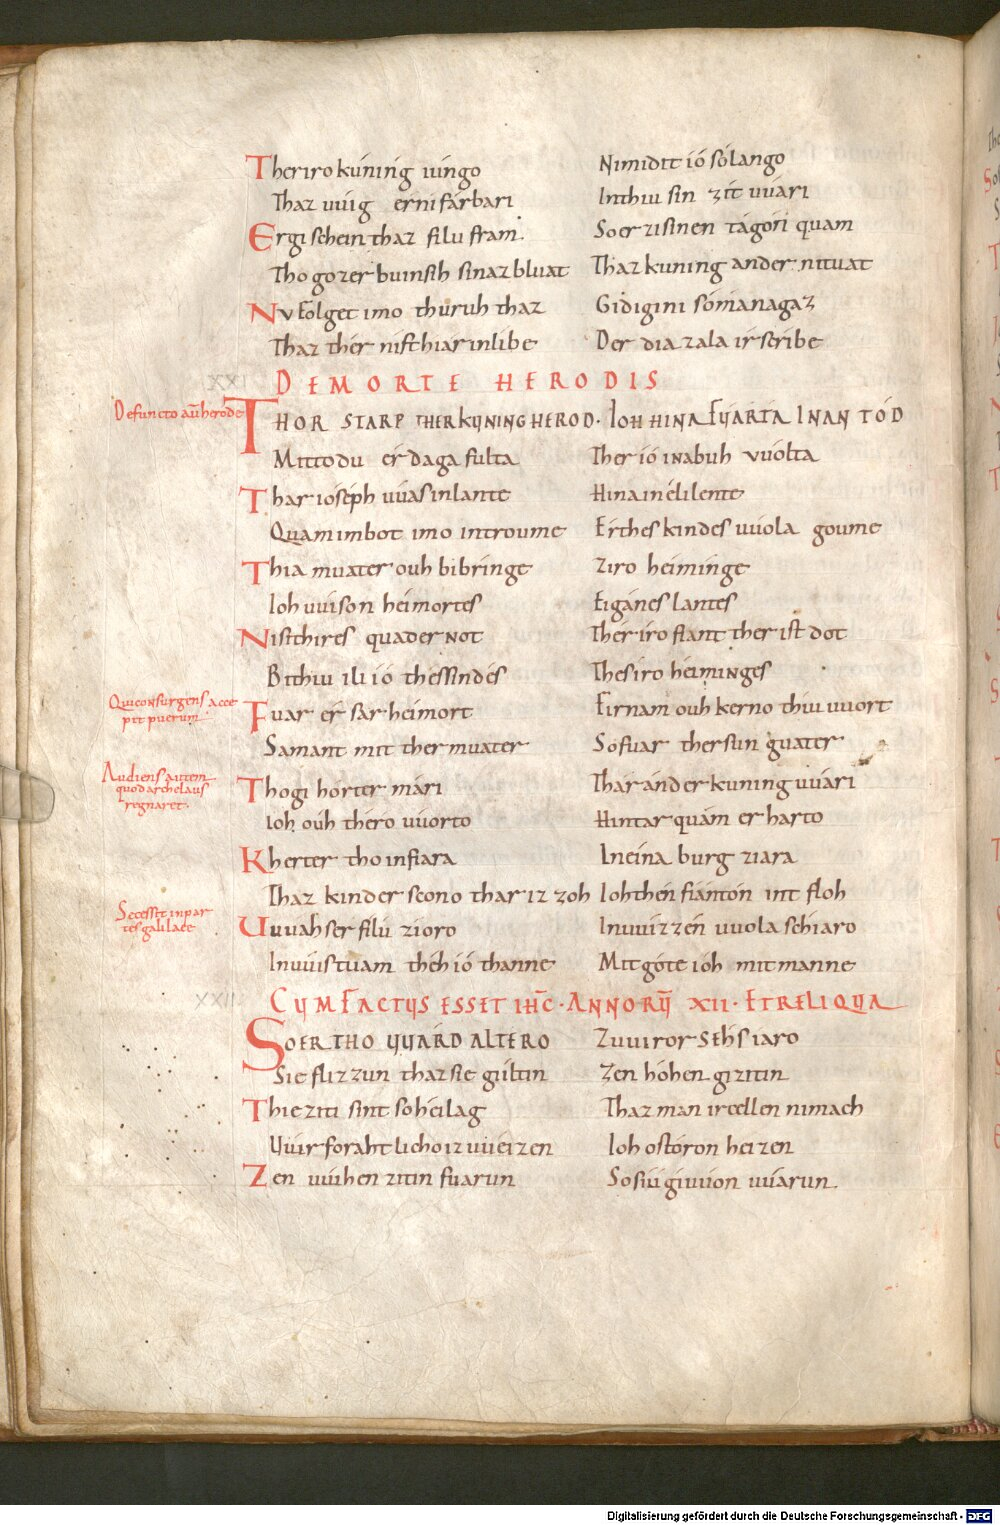 Theriro kúning iúngo Nimidit ió sólango
Thaz uuig er ni fárbari Inthiu sin zít uuári
Er gischein thaz filu fram Soer zisinen tágon quam
Tho goz er bi unsih sinaz bluat Thaz kuning ander nituat
Nu folget imo thuruh thaz Gidigini sómanagaz
Thaz thér nist hiar inlibe Der dia zala irscribe
DE MORTE HERODIS
Defuncto aut̄ herode
THOR STARP THER KUNING HEROD· Ioh hina fuarta INAN TOD
Mittodu er daga fulta Ther ió inabuh vuolta
Thar ioseph uuas inlante Hina in élilente
Quam imbot imo introume Er thes kindes uuola goume
Thia muater ouh bibringe ziro heiminge
Ioh uuison heimortes Eiganes lantes
Nist thir es quad er not Thér iro fiant ther ist dot
Bithiu ili ió thes sindes Thes iro heiminges
Qui consurgens acce
pit puerum·
Fuar er sar heimort Firnam ouh kerno thiu uuort
Samant mit ther muater So fuar ther sun guater
Audiens autem
quod archelaus
regnaret·
Tho gihorter mári Thar ánder kuning uuári
Ioh ouh théro uuorto Hintarquám er harto
Kherter tho in fiara In eina burg ziara
Thaz kinder scono thar iz zoh Ioh then fiánton int floh
Secessit in par
tes galilaee
Uuuahser filu zioro In uuizzén uuola schiaro
In uuistuam théh ió thanne Mit góte ióh mit manne
XXII
CUM FACTUS ESSET IHC̄· ANNORŪ XII· ET RELIQUA
SOER THO UUARD ALTERO Zuuiror sehs iaro
Sie flizzun thaz sie gúltin Zen hóhen gizitin
Thie ziti sint so héilag Thaz man ircellen nimach
Uuir forahtlicho iz uueizen Ioh ostóron heizen
Zen uuihen zitin fuarun So siu giuuon uuarun
Digitalisierung gefördert durch die Deutsche Forschungsgemeinschaft - DFG